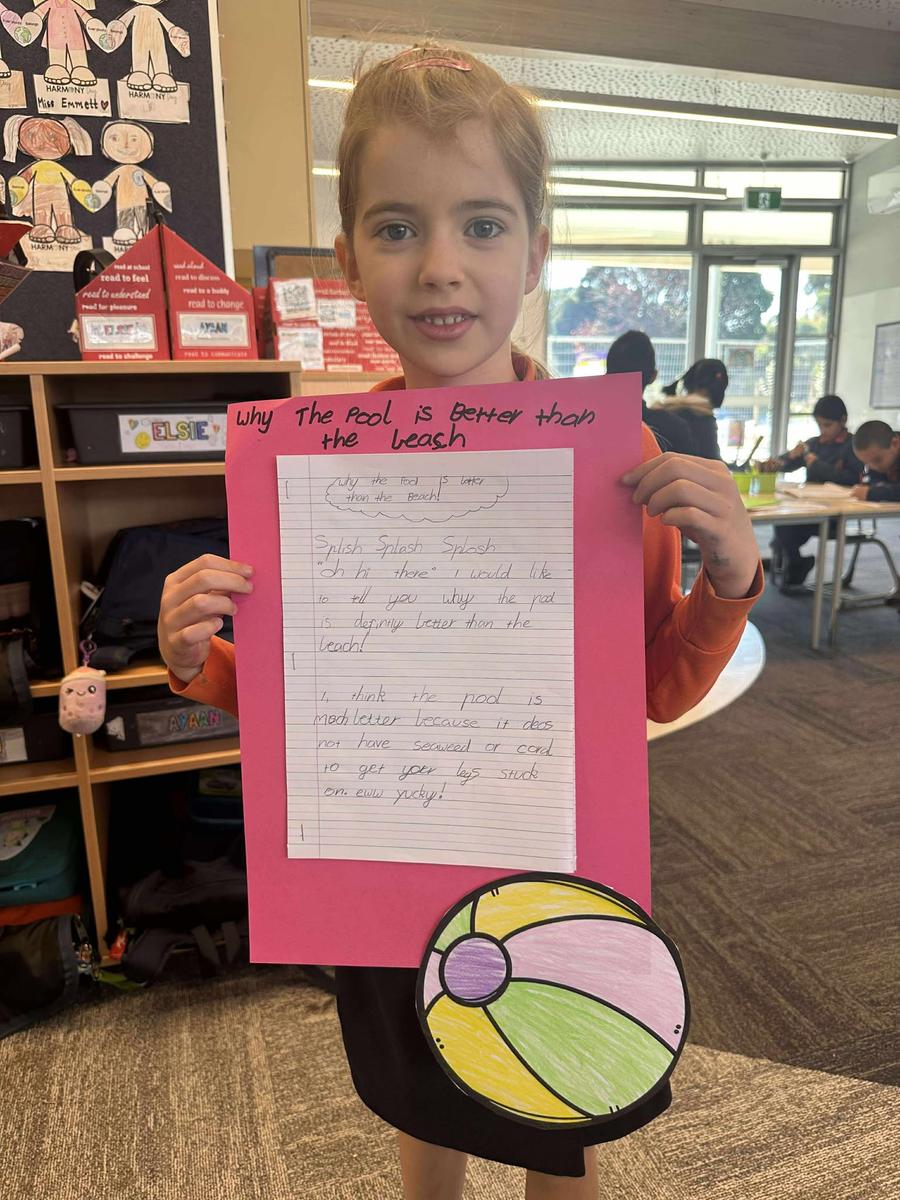 HARMONY Day
Miss Emmett
HARMONY Day
HARMONY Day
HARMONY
read at school
read to feel
read to understand
read for pleasure
ELSIE
read to challenge
read aloud
read to discuss
read to a buddy
read to change
AYAAN
read to communicate
ELSIE
AYAAN
why The Pool is Better than
the beach
why the Pool is better
than the Beach!
Splish Splash Splosh
"oh hi there" I would like
to tell you why the pool
is definitly better than the
beach!
I, think the pool is
moch better because it deos
not have seaweed or coral
to get your legs stuck
on. eww yucky!